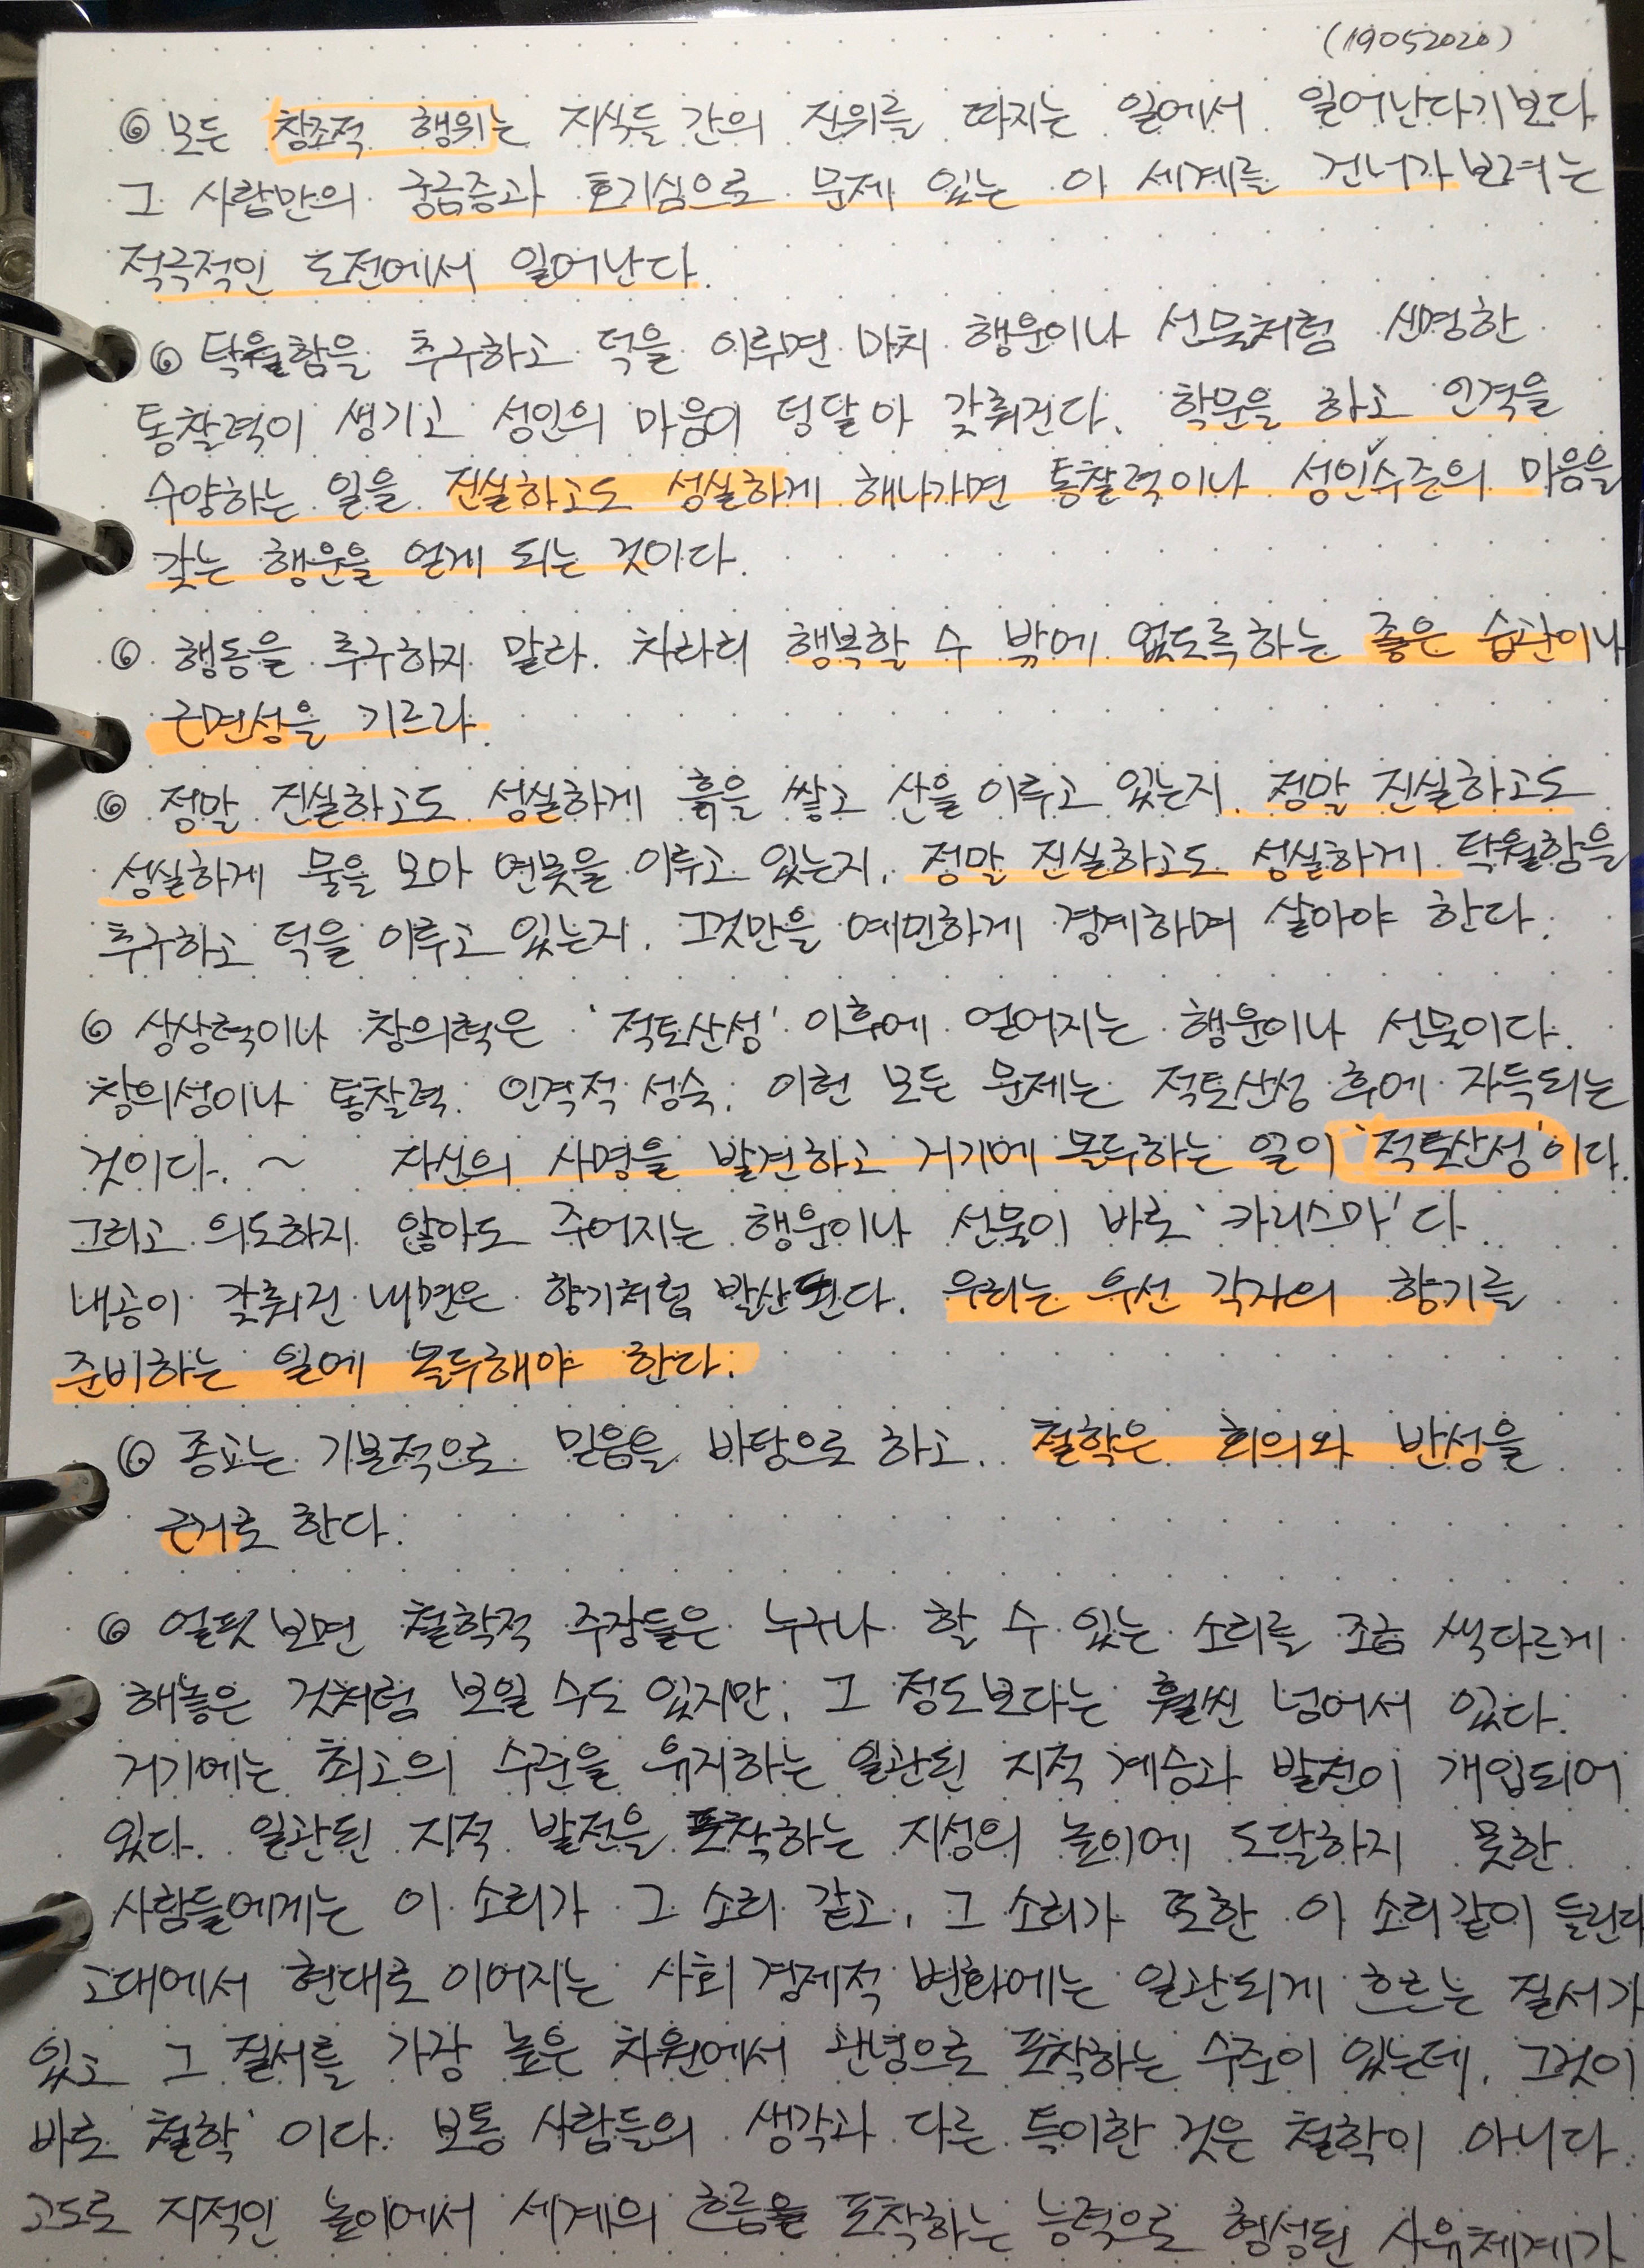 (19052020)
◎ 모든 창조적 행위는 지식들 간의 진위를 따지는 일에서 일어난다기보다
그 사람만의 궁금증과 호기심으로 문제 있는 이 세계를 건너가보려는
적극적인 도전에서 일어난다.
◎ 탁월함을 추구하고 덕을 이루면 마치 행운이나 선물처럼 신명한
통찰력이 생기고 성인의 마음이 덩달아 갖춰진다. 학문을 하고 인격을
수양하는 일을 진실하고도 성실하게 해나가면 통찰력이나 성인✓수준의 마음을
갖는 행운을 얻게 되는 것이다.
◎ 행동을 추구하지 말라. 차라리 행복할 수 밖에 없도록하는 좋은 습관이나
근면성을 기르라.
◎ 정말 진실하고도 성실하게 흙을 쌓고 산을 이루고 있는지, 정말 진실하고도
성실하게 물을 모아 연못을 이루고 있는지, 정말 진실하고도 성실하게 탁월함을
추구하고 덕을 이루고 있는지. 그것만을 예민하게 경계하며 살아야 한다.
◎ 상상력이나 창의력은 '적토산성' 이후에 얻어지는 행운이나 선물이다.
창의성이나 통찰력, 인격적 성숙, 이런 모든 문제는 적토산성 후에 자득되는
것이다. ~ 자신의 사명을 발견하고 거기에 몰두하는 일이 '적토산성'이다.
그리고 의도하지 않아도 주어지는 행운이나 선물이 바로 '카리스마'다.
내공이 갖춰진 내면은 향기처럼 발산된다. 우리는 우선 각자의 향기를
준비하는 일에 몰두해야 한다.
◎ 종교는 기본적으로 믿음을 바탕으로 하고, 철학은 회의와 반성을
근거로 한다.
◎ 얼핏 보면 철학적 주장들은 누구나 할 수 있는 소리를 조금 색다르게
해놓은 것처럼 보일 수도 있지만, 그 정도보다는 훨씬 넘어서 있다.
거기에는 최고의 수준을 유지하는 일관된 지적 계승과 발전이 개입되어
있다. 일관된 지적 발전을 포착하는 지성의 높이에 도달하지 못한
사람들에게는 이 소리가 그 소리 같고, 그 소리가 또한 이 소리같이 들린다
고대에서 현대로 이어지는 사회 경제적 변화에는 일관되게 흐르는 질서가
있고 그 질서를 가장 높은 차원에서 관념으로 포착하는 수준이 있는데, 그것이
바로 '철학' 이다. 보통 사람들의 생각과 다른 특이한 것은 철학이 아니다.
고도로 지적인 높이에서 세계의 흐름을 포착하는 능력으로 형성된 사유체계가